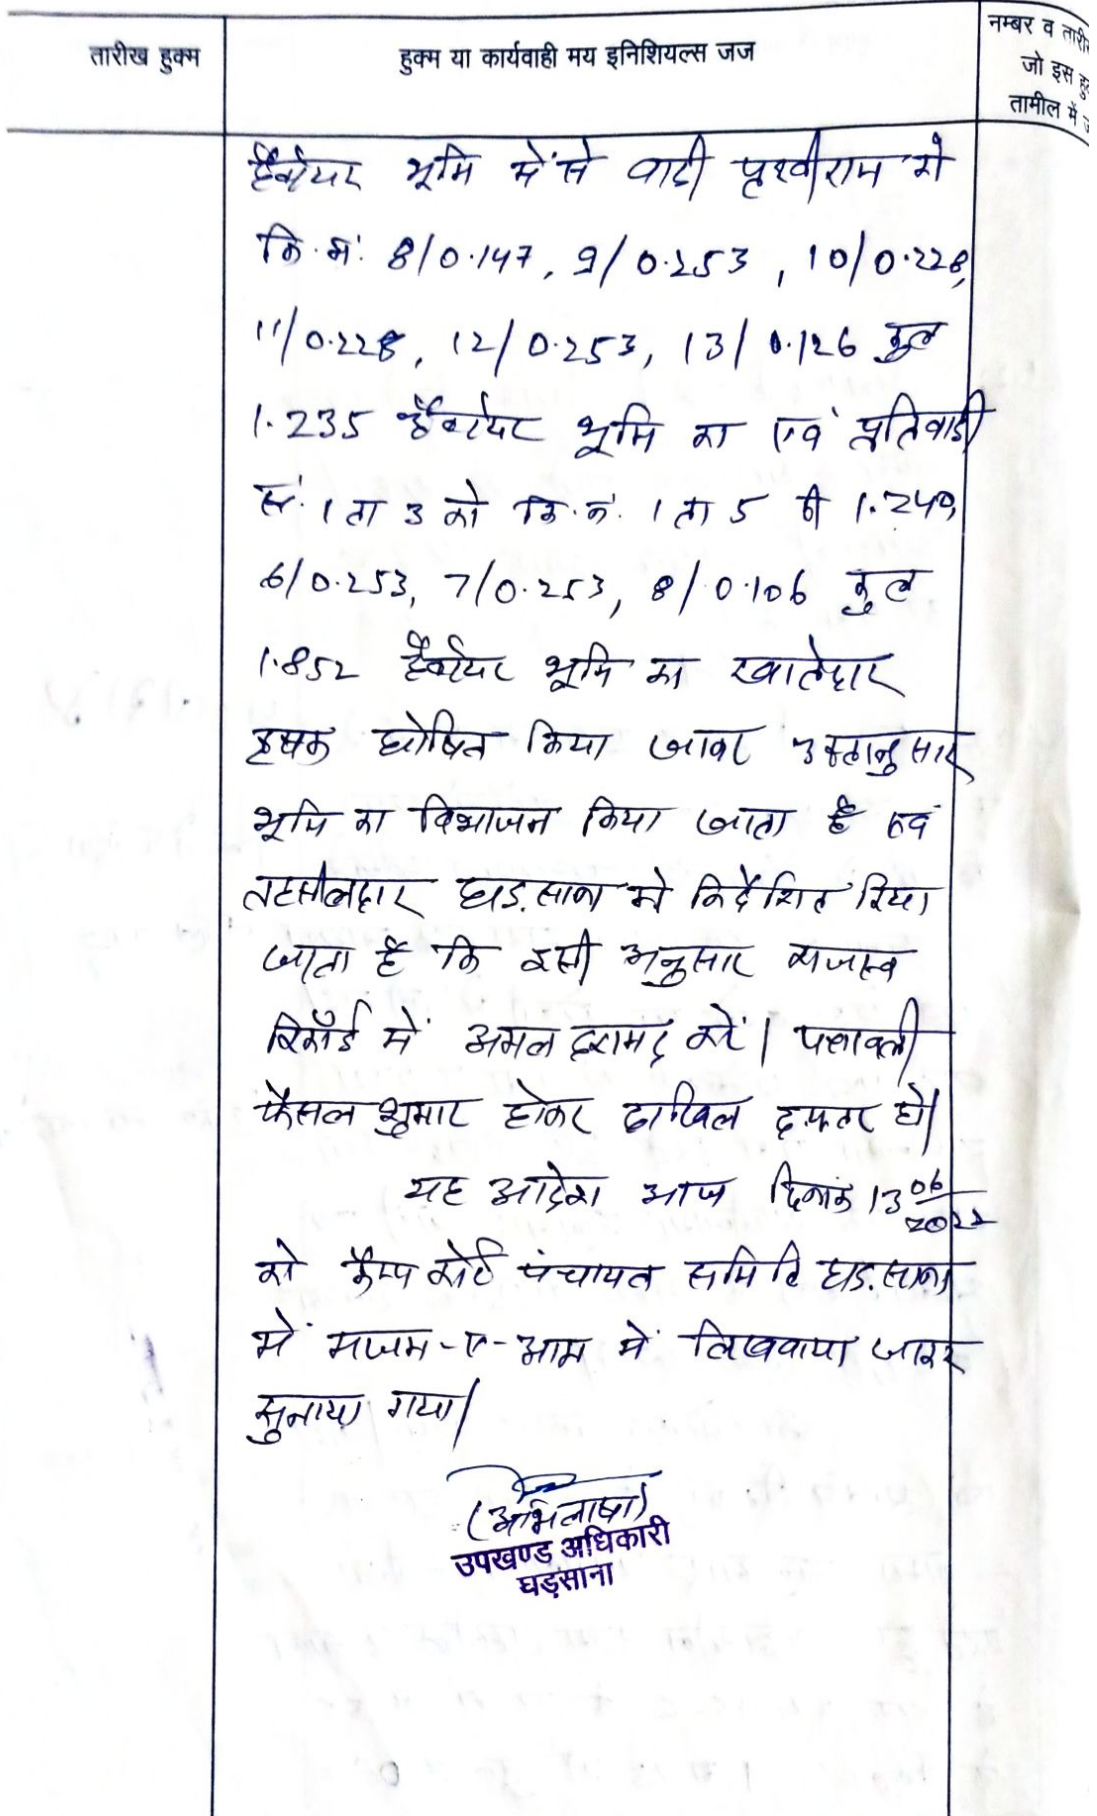 तारीख हुक्म
हुक्म या कार्यवाही मय इनिशियल्स जज
नम्बर व तारी
जो इस हु
तामील में ज
हैक्टेयर भूमि में से वादी पृथ्वीराम को
कि.नं. 8/0.147, 9/0.253, 10/0.228,
11/0.228, 12/0.253, 13/0.126 कुल
1.235 हैक्टेयर भूमि का एवं प्रतिवादी
सं. 1 ता 3 को कि.नं. 1 ता 5 की 1.240,
6/0.253, 7/0.253, 8/0.106 कुल
1.852 हैक्टेयर भूमि का खातेदार
कृषक घोषित किया जाकर उक्तानुसार
भूमि का विभाजन किया जाता है एवं
तहसीलदार घड़साना को निर्देशित किया
जाता है कि इसी अनुसार राजस्व
रिकॉर्ड में अमल दरामद करें। पत्रावली
फैसल शुमार होकर दाखिल दफ्तर हो।
यह आदेश आज दिनांक 13 06/2022
को कैम्प कोर्ट पंचायत समिति घड़साना
में मजम-ए-आम में लिखवाया जाकर
सुनाया गया।
(अभिलाषा)
उपखण्ड अधिकारी
घड़साना